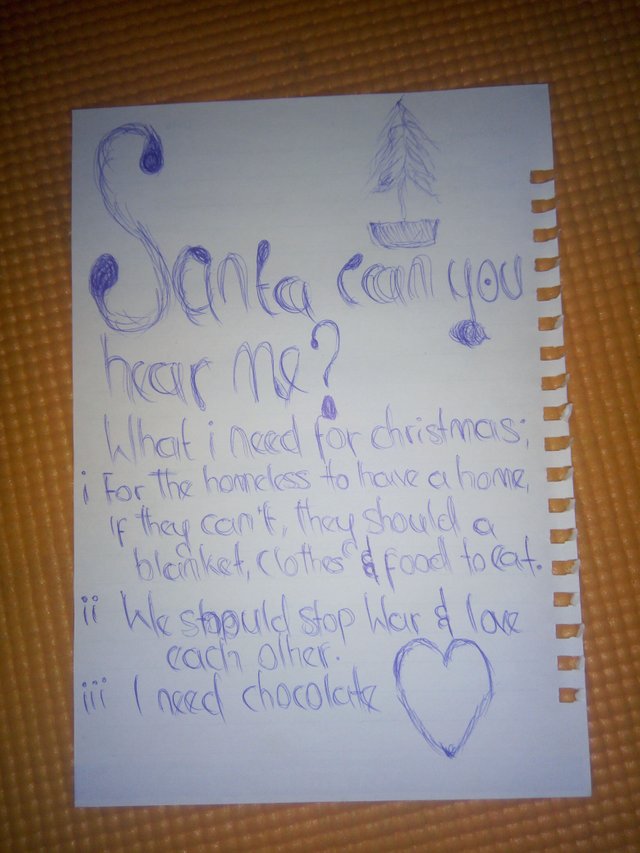 Santa can you
hear me?
What i need for christmas;
i For the homeless to have a home,
if they can't, they should a
blanket, clothes & food to eat.
ii We should stop War & love
each other.
iii I need chocolate